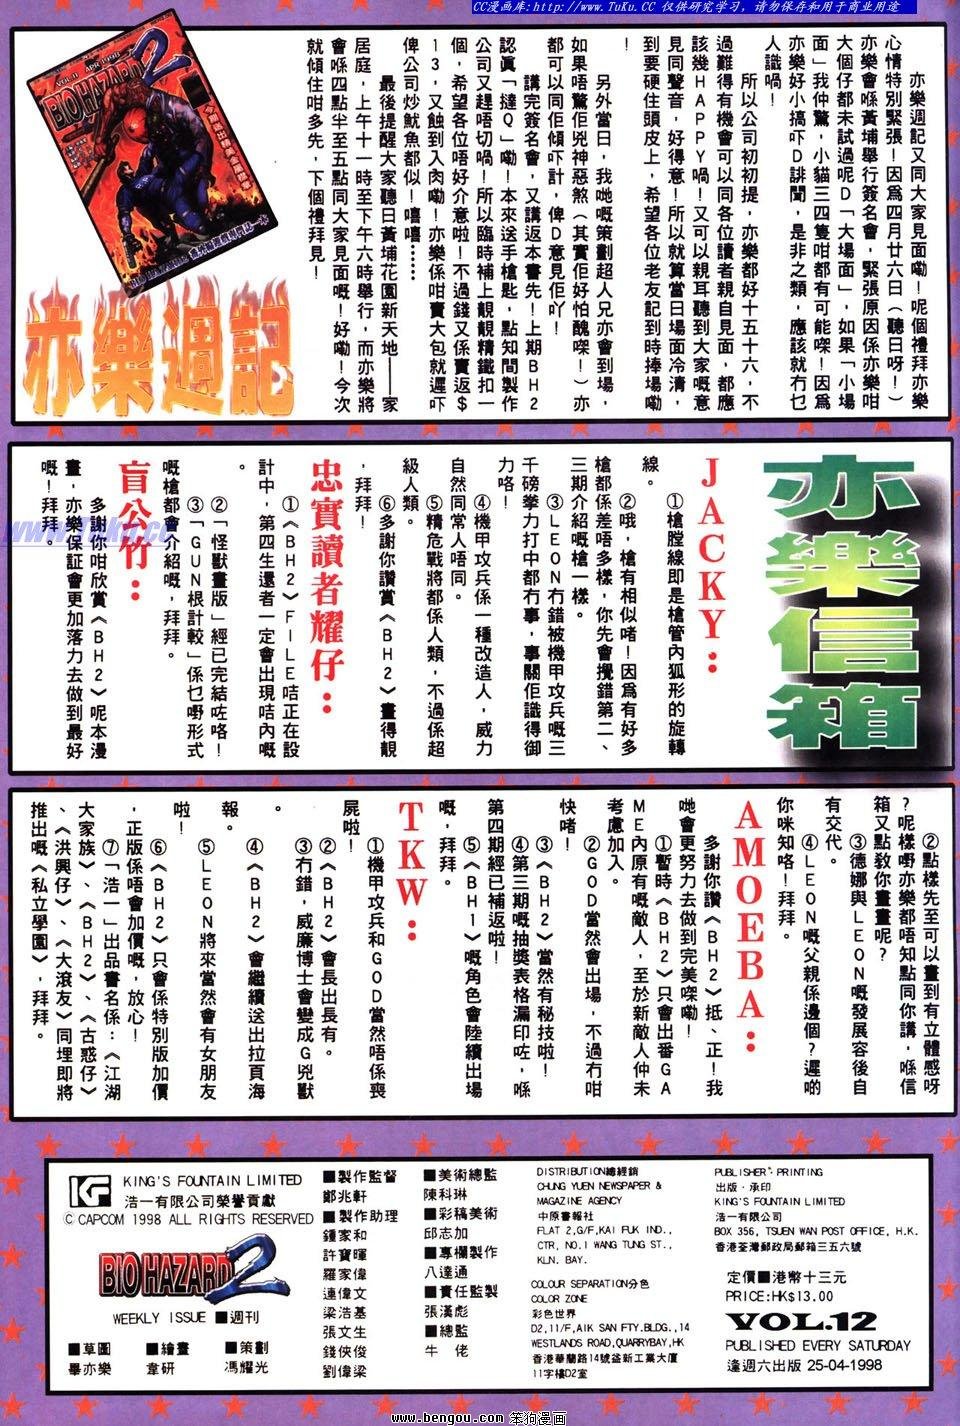 CC漫画库:http://www.TuKu.CC 仅供研究学习，请勿保存和用于商业用途
亦樂週記又同大家見面嘞！呢個禮拜亦樂
心情特別緊張！因為四月廿六日（聽日呀！）
亦樂會喺黃埔舉行簽名會，緊張原因係亦樂咁
大個仔都未試過呢D「大場面」，如果「小場
面」我仲驚，小貓三四隻咁都有可能㗎！因為
亦樂好小搞吓D誹聞，是非之類，應該就冇乜
人識喎！
所以公司初初提，亦樂都好十五十六，不
過難得有機會可以同各位讀者親自見面，都應
該幾HAPPY喎！又可以親耳聽到大家嘅意
見同聲音，好得意！所以就算當日場面冷清，
到要硬住頭皮上，希望各位老友記到時捧場嘞
！
另外當日，我哋嘅策劃超人兄亦會到場，
如果唔驚佢兇神惡煞（其實佢好怕醜㗎！）亦
都可以同佢傾吓計，俾D意見佢吖！
講完簽名會，又講返本書先！上期BH2
認真「撻Q」嘞！本來送手槍匙，點知間製作
公司又趕唔切喎！所以臨時補上靚靚精鐵扣一
個，希望各位唔好介意啦！不過錢又係賣返$
13，又蝕到入肉嘞！亦樂係咁賣大包就遲吓
俾公司炒魷魚都似！嘻嘻……
最後提醒大家聽日黃埔花園新天地——家
居庭，上午十一時至下午六時舉行，而亦樂將
會喺四點半至五點同大家見面嘅！好嘞！今次
就傾住咁多先，下個禮拜見！
VOL.11 APR 1998
BIOHAZARD 2
亦樂週記
亦樂信箱
JACKY：
①槍膛線即是槍管內狐形的旋轉
線。
②哦，槍有相似啫！因為有好多
槍都係差唔多樣，你先會攪錯第二、
三期介紹嘅槍一樣。
③LEON冇錯被機甲攻兵嘅三
千磅拳力打中都冇事，事關佢識得御
力咯！
④機甲攻兵係一種改造人，威力
自然同常人唔同。
⑤精危戰將都係人類，不過係超
級人類。
⑥多謝你讚賞《BH2》畫得靚
，拜拜！
忠實讀者耀仔：
①《BH2》FILE咭正在設
計中，第四生還者一定會出現咭內嘅
。
②「怪獸畫版」經已完結咗咯！
③「GUN根計較」係乜嘢形式
嘅槍都會介紹嘅，拜拜。
盲公竹：
多謝你咁欣賞《BH2》呢本漫
畫，亦樂保証會更加落力去做到最好
嘅！拜拜。
www.TuKu.cc
②點樣先至可以畫到有立體感呀
？呢樣嘢亦樂都唔知點同你講，喺信
箱又點教你畫畫呢？
③德娜與LEON嘅發展容後自
有交代。
④LEON嘅父親係邊個？遲啲
你咪知咯！拜拜。
AMOEBA：
多謝你讚《BH2》抵、正！我
哋會更努力去做到完美㗎嘞！
①暫時《BH2》只會出番GA
ME內原有嘅敵人，至於新敵人仲未
考慮加入。
②GOD當然會出場，不過冇咁
快啫！
③《BH2》當然有秘技啦！
④第三期嘅抽獎表格漏印咗，喺
第四期經已補返啦！
⑤《BH1》嘅角色會陸續出場
嘅，拜拜。
TKW：
①機甲攻兵和GOD當然唔係喪
屍啦！
②《BH2》會長出長有。
③冇錯，威廉博士會變成G兇獸
。
④《BH2》會繼續送出拉頁海
報。
⑤LEON將來當然會有女朋友
啦！
⑥《BH2》只會係特別版加價
，正版係唔會加價嘅，放心！
⑦「浩一」出品書名係：《江湖
大家族》、《BH2》、《古惑仔》
、《洪興仔》、《大滾友》同埋即將
推出嘅《私立學園》，拜拜。
KF
KING'S FOUNTAIN LIMITED
浩一有限公司榮譽貢獻
©CAPCOM 1998 ALL RIGHTS RESERVED
BIOHAZARD 2
WEEKLY ISSUE ■週刊
■草圖
畢亦樂
■繪畫
韋研
■策劃
馮耀光
■製作監督
鄭兆軒
■製作助理
鍾家和
許寶暉
羅家偉
連偉文
梁浩基
張文生
錢俠俊
劉偉梁
■美術總監
陳科琳
■彩稿美術
邱志加
■專欄製作
八達通
■責任監製
張漢彪
■總監
牛佬
DISTRIBUTION總經銷
CHUNG YUEN NEWSPAPER &
MAGAZINE AGENCY
中原書報社
FLAT 2,G/F,KAI FUK IND.,
CTR, NO.1 WANG TUNG ST.,
KLN. BAY.
COLOUR SEPARATION分色
COLOR ZONE
彩色世界
D2,11/F,AIK SAN FTY.BLDG.,14
WESTLANDS ROAD,QUARRYBAY,HK
香港華蘭路14號益新工業大廈
11字樓D2室
PUBLISHER·PRINTING
出版·承印
KING'S FOUNTAIN LIMITED
浩一有限公司
BOX 356, TSUEN WAN POST OFFICE, H.K.
香港荃灣郵政局郵箱三五六號
定價■港幣十三元
PRICE:HK$13.00
VOL.12
PUBLISHED EVERY SATURDAY
逢週六出版 25-04-1998
www.bengou.com 笨狗漫画